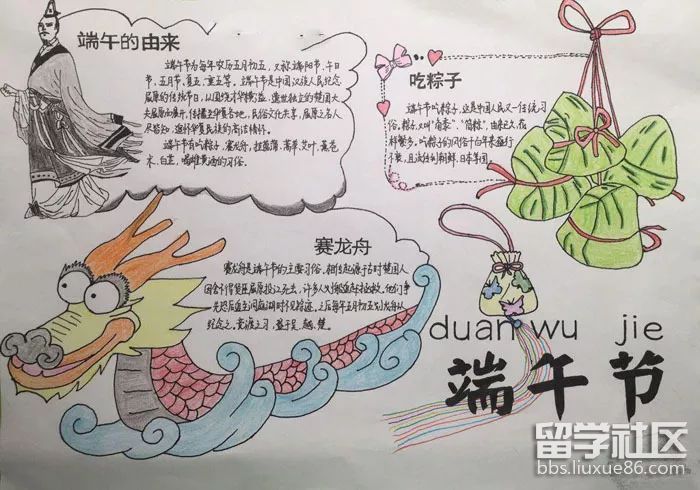 端午的由来
端午节为每年农历五月初五,又称端阳节,午日
节、五月节、夏五、重五等。端午节是中国汉族人民纪念
屈原的传统节日,以围绕才华横溢、遗世独立的楚国大
夫屈原而展开,传播至华夏各地,民俗文化共享,屈原之名人
尽皆知,追怀华夏民族的高洁情怀。
端午节有吃粽子,赛龙舟,挂菖蒲、蒿草、艾叶,薰苍
术、白芷,喝雄黄酒的习俗。
吃粽子
端午节吃粽子,这是中国人民又一传统习
俗。粽子,又叫"角黍"、"筒粽",由来已久,花
样繁多。吃粽子的风俗千百年来盛行
不衰,且流传到朝鲜、日本等国。
赛龙舟
赛龙舟是端午节的主要习俗,相传起源于古时楚国人
因舍不得贤臣屈原投江死去,许多人划船追赶拯救。他们争
先恐后追至洞庭湖时不见踪迹。之后每年五月初五划龙舟以
纪念之。竞渡之习,盛于吴、越、楚。
duan wu jie
端午节
留学社区
bbs.liuxue86.com